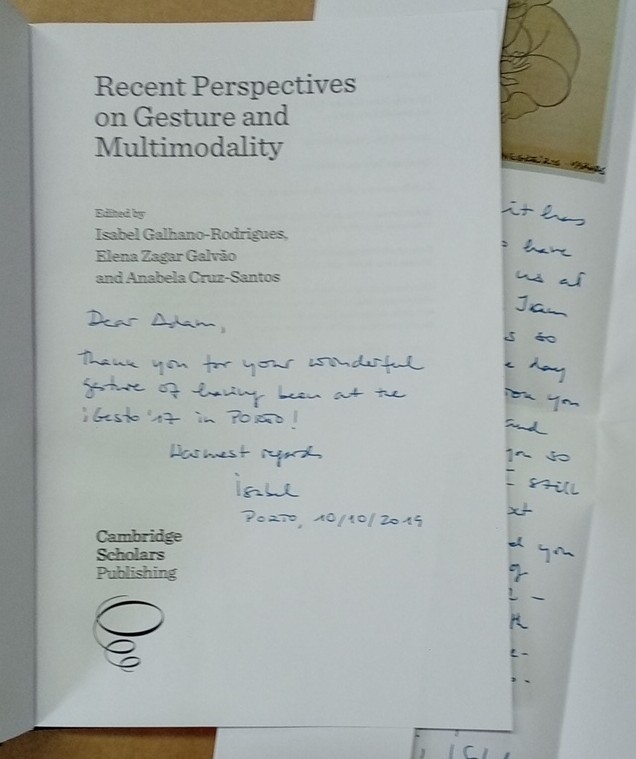 Recent Perspectives
on Gesture and
Multimodality
Edited by
Isabel Galhano-Rodrigues,
Elena Zagar Galvão
and Anabela Cruz-Santos
Dear Adam,
Thank you for your wonderful
gesture of having been at the
iGesto '17 in PORTO!
Warmest regards
Isabel
PORTO, 10/10/2019
Cambridge
Scholars
Publishing
it has
have
us at
so
day
you
and
so
still
you